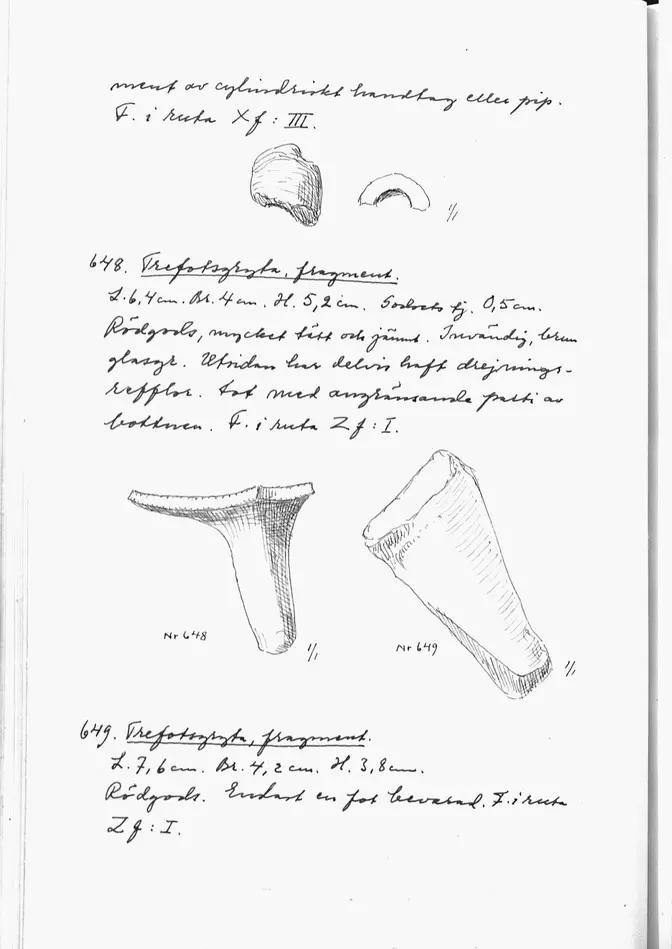 ment av cylindriskt handtag eller pip.
F. i ruta Xf : III.
1/1
648. Trefotsgryta, fragment.
L. 6,4 cm. Br. 4 cm. H. 5,2 cm. Godsets tj. 0,5 cm.
Rödgods, mycket tätt och jämnt. Invändig, brun
glasyr. Utsidan har delvis haft drejnings-
refflor. Fot med angränsande parti av
bottnen. F. i ruta Zf : I.
Nr 648
1/1
Nr 649
1/1
649. Trefotsgryta, fragment.
L. 7,6 cm. Br. 4,2 cm. H. 3,8 cm.
Rödgods. Endast en fot bevarad. F. i ruta
Zf : I.